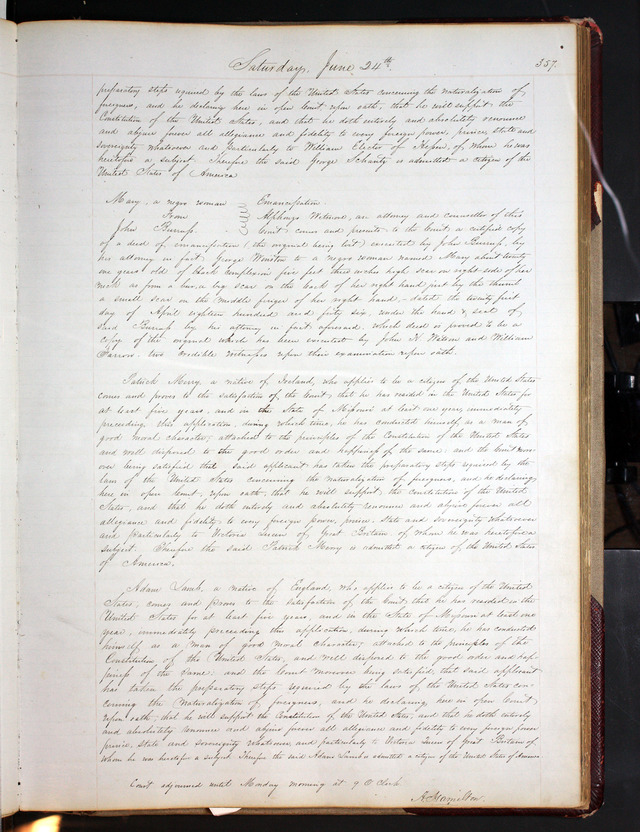 Saturday, June 24th 357.
preparatory steps required by the laws of the United States concerning the naturalization of
foreigners, and he declaring here in open Court upon oath, that he will support the
Constitution of the United States, and that he doth entirely and absolutely renounce
and abjure forever all allegiance and fidelity to every foreign power, prince, state and
sovereignty whatsoever and particularly to William Elector of Hesse, of whom he was
heretofore a subject. Therefore the said George is admitted a citizen of the
United States of America
Mary, a negro woman Emancipation
From Alphonzo Wetmore, an attorney and counsellor of this
John Burrup. Court, comes and presents to the Court, a certified copy
of a deed of emancipation (the original being lost) executed by John Burrup, by
his attorney in fact George Weston to a negro woman named Mary about twenty
one years old of black complexion five feet three inches high, scar on right side of her
neck as from a burn, a big scar on the back of her right hand just by the thumb
a small scar on the middle finger of her right hand, - dated the twenty first
day of April eighteen hundred and forty six, under the hand & seal of
said Burrup by his attorney in fact aforesaid, which deed is proved to be a
copy of the original which has been executed by John H. Watson and William
Farrow, two credible witnesses upon their examination upon oath.
Patrick Merry, a native of Ireland, who applies to be a citizen of the United States
comes and proves to the satisfaction of the Court, that he has resided in the United States for
at least five years, and in the State of Missouri at least one year, immediately
preceeding this application, during which time, he has conducted himself as a man of
good moral character, attached to the principles of the Constitution of the United States
and well disposed to the good order and happiness of the same: and the Court more-
over being satisfied that said applicant has taken the preparatory steps required by the
laws of the United States concerning the naturalization of foreigners, and he declaring
here in open Court, upon oath, that he will support the Constitution of the United
States, and that he doth entirely and absolutely renounce and abjure forever all
allegiance and fidelity to every foreign power, prince, State and Sovereignty whatsoever
and particularly to Victoria Queen of Great Britain, of whom he was heretofore a
subject. Therefore the said Patrick Merry is admitted a citizen of the United States
of America.
Adam Lamb, a native of England, who applies to be a citizen of the United
States, comes and proves to the satisfaction of the Court, that he has resided in the
United States for at least five years, and in the State of Missouri at least one
year, immediately preceeding this application, during which time, he has conducted
himself as a man of good moral character; attached to the principles of the
Constitution of the United States, and well disposed to the good order and hap-
piness of the same: and the Court moreover being satisfied, that said applicant
has taken the preparatory steps required by the laws of the United States con-
cerning the naturalization of foreigners, and he declaring here in open Court,
upon oath, that he will support the Constitution of the United States, and that he doth entirely
and absolutely renounce and abjure forever all allegiance and fidelity to every foreign power
prince, state and sovereignty whatsoever and particularly to Victoria Queen of Great Britain of
whom he was heretofore a subject. Therefore the said Adam Lamb is admitted a citizen of the United States of America
Court adjourned until Monday morning at 9 O Clock
A. Hamilton.